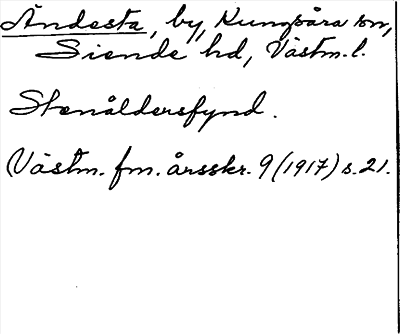 Ändesta, by, Kungsåra sn,
Siende hd, Västm. l.
Stenåldersfynd.
Västm. fm. årsskr. 9 (1917) s. 21.